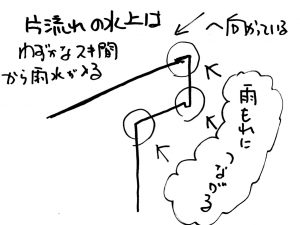 片流れの水上は
わずかなスキ間
から雨水が入る
へ向かっている
雨もれに
つながる